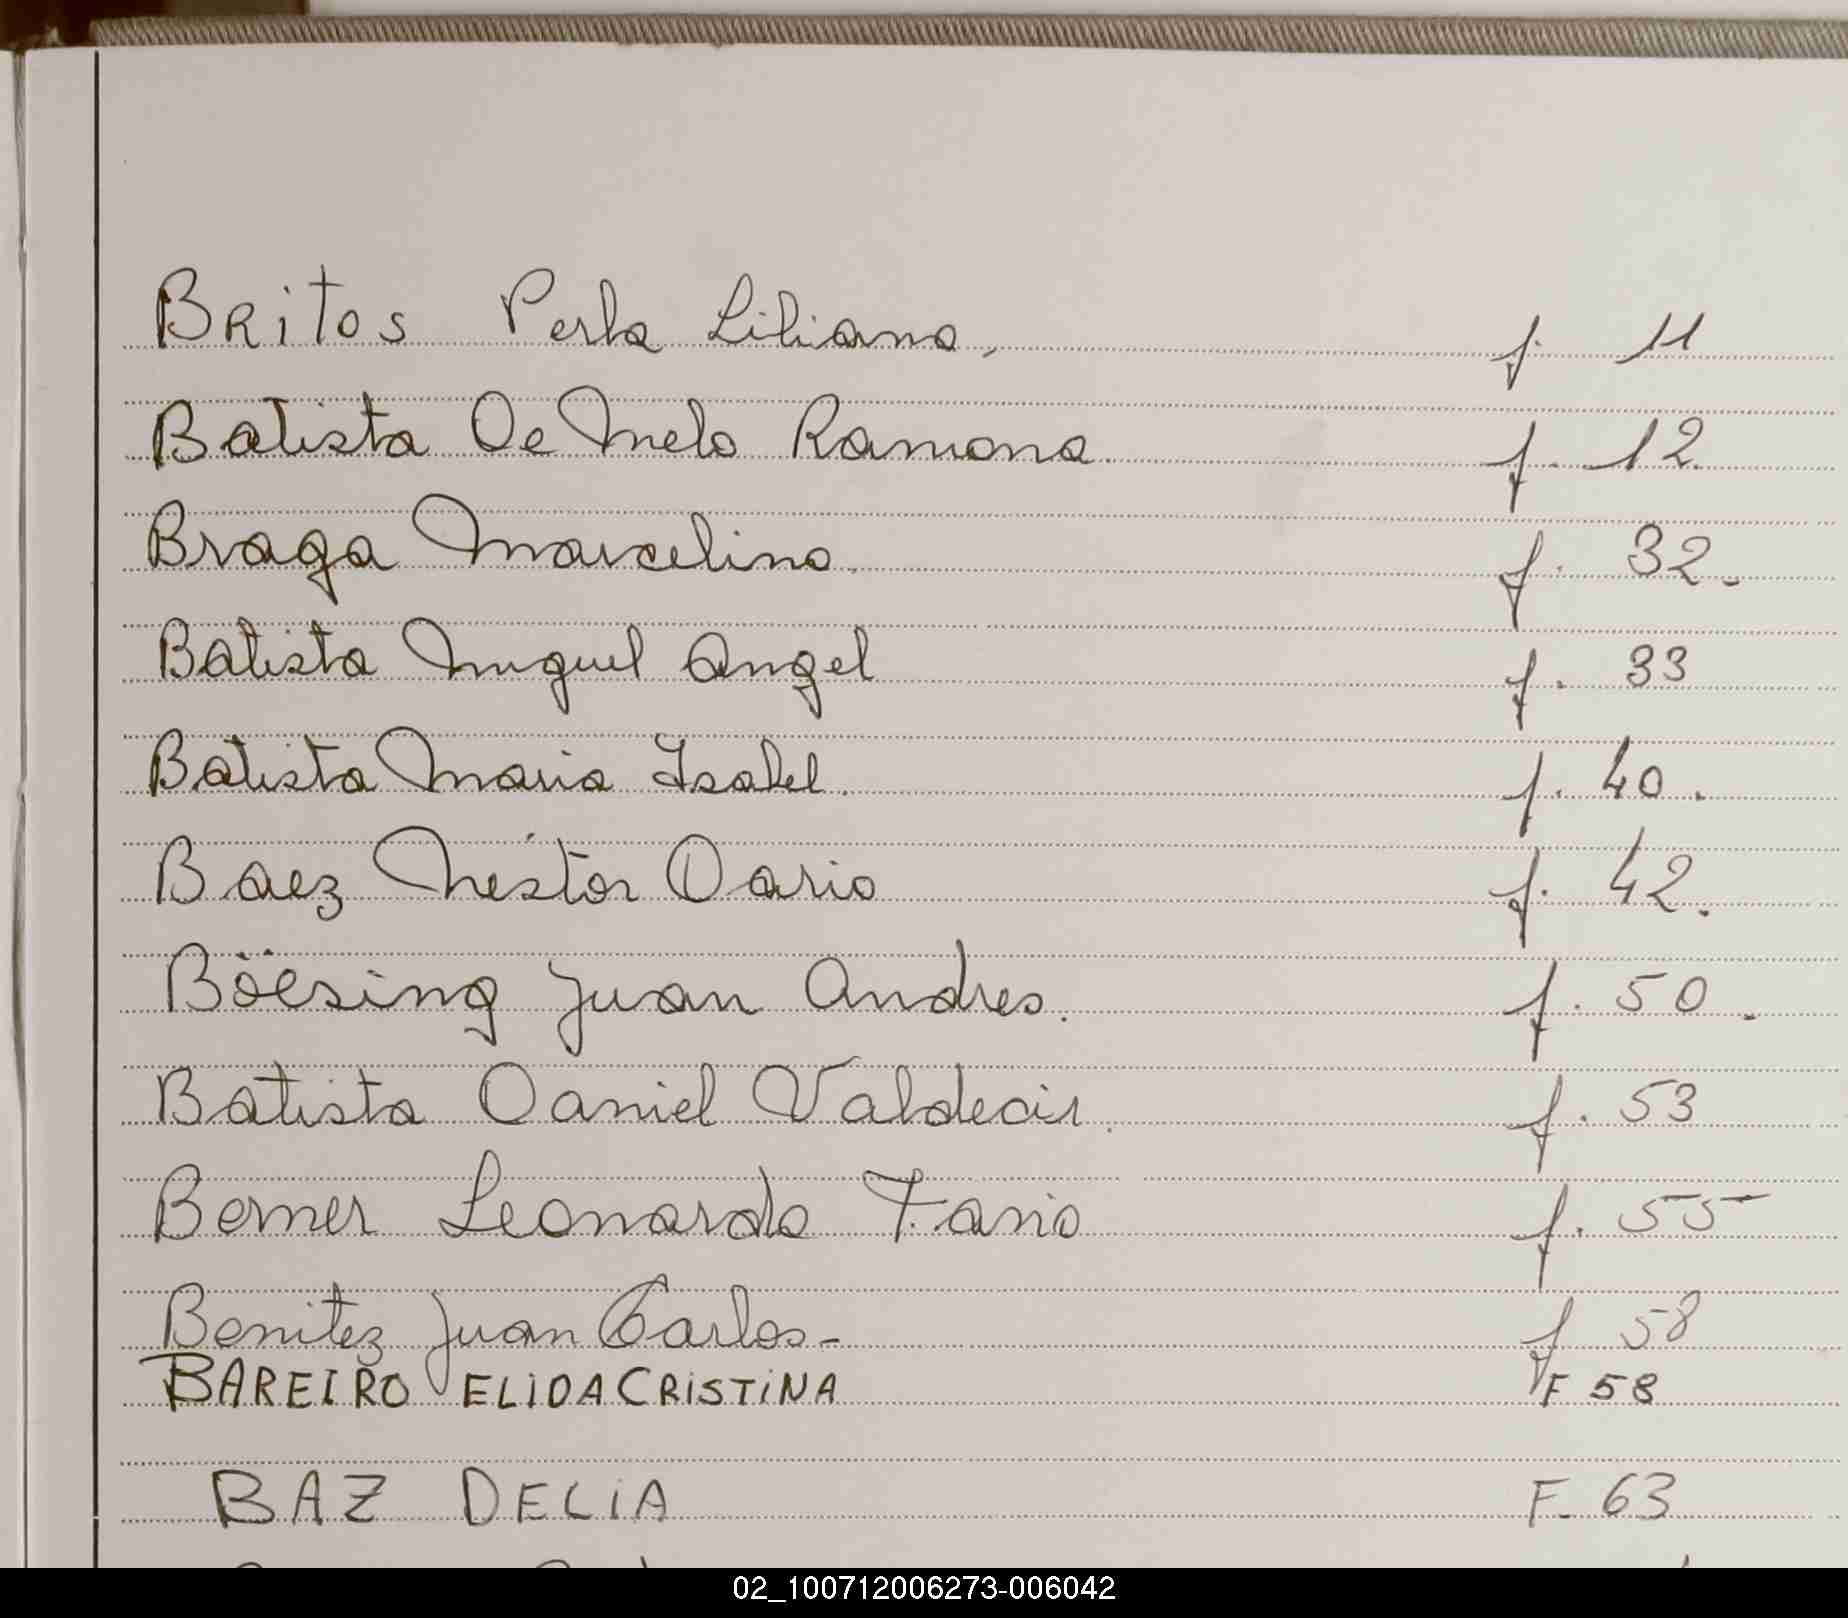 BRitos Perla Liliana, f. 11
Batista De Melo Ramona. f. 12.
Braga Marcelino. f. 32.
Batista Miguel Angel f. 33
Batista Maria Isabel. f. 40.
Baez Néstor Dario f. 42.
Böesing Juan Andres. f. 50.
Batista Daniel Valdecir. f. 53
Berner Leonardo Fario f. 55
Benitez Juan Carlos- f 58
BAREIRO ELIDA CRISTINA F 58
BAZ DELIA F. 63
02_100712006273-006042